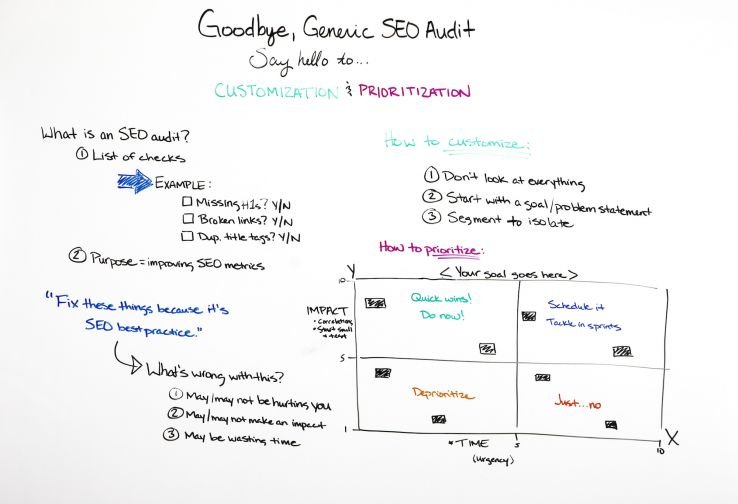 Goodbye, Generic SEO Audit
Say hello to...
CUSTOMIZATION & PRIORITIZATION
What is an SEO audit?
① List of checks
EXAMPLE:
☐ Missing H1s? Y/N
☐ Broken links? Y/N
☐ Dup. title tags? Y/N
② Purpose = improving SEO metrics
"Fix these things because it's
SEO best practice."
What's wrong with this?
① May/may not be hurting you
② May/may not make an impact
③ May be wasting time
How to customize:
① Don't look at everything
② Start with a goal/problem statement
③ Segment to isolate
How to prioritize:
Y
<Your goal goes here>
10
IMPACT
• Correlations
• Start small
+ test
Quick wins!
Do now!
Schedule it
Tackle in sprints
5
Deprioritize
Just...no
1
*TIME
(urgency)
5
10
X